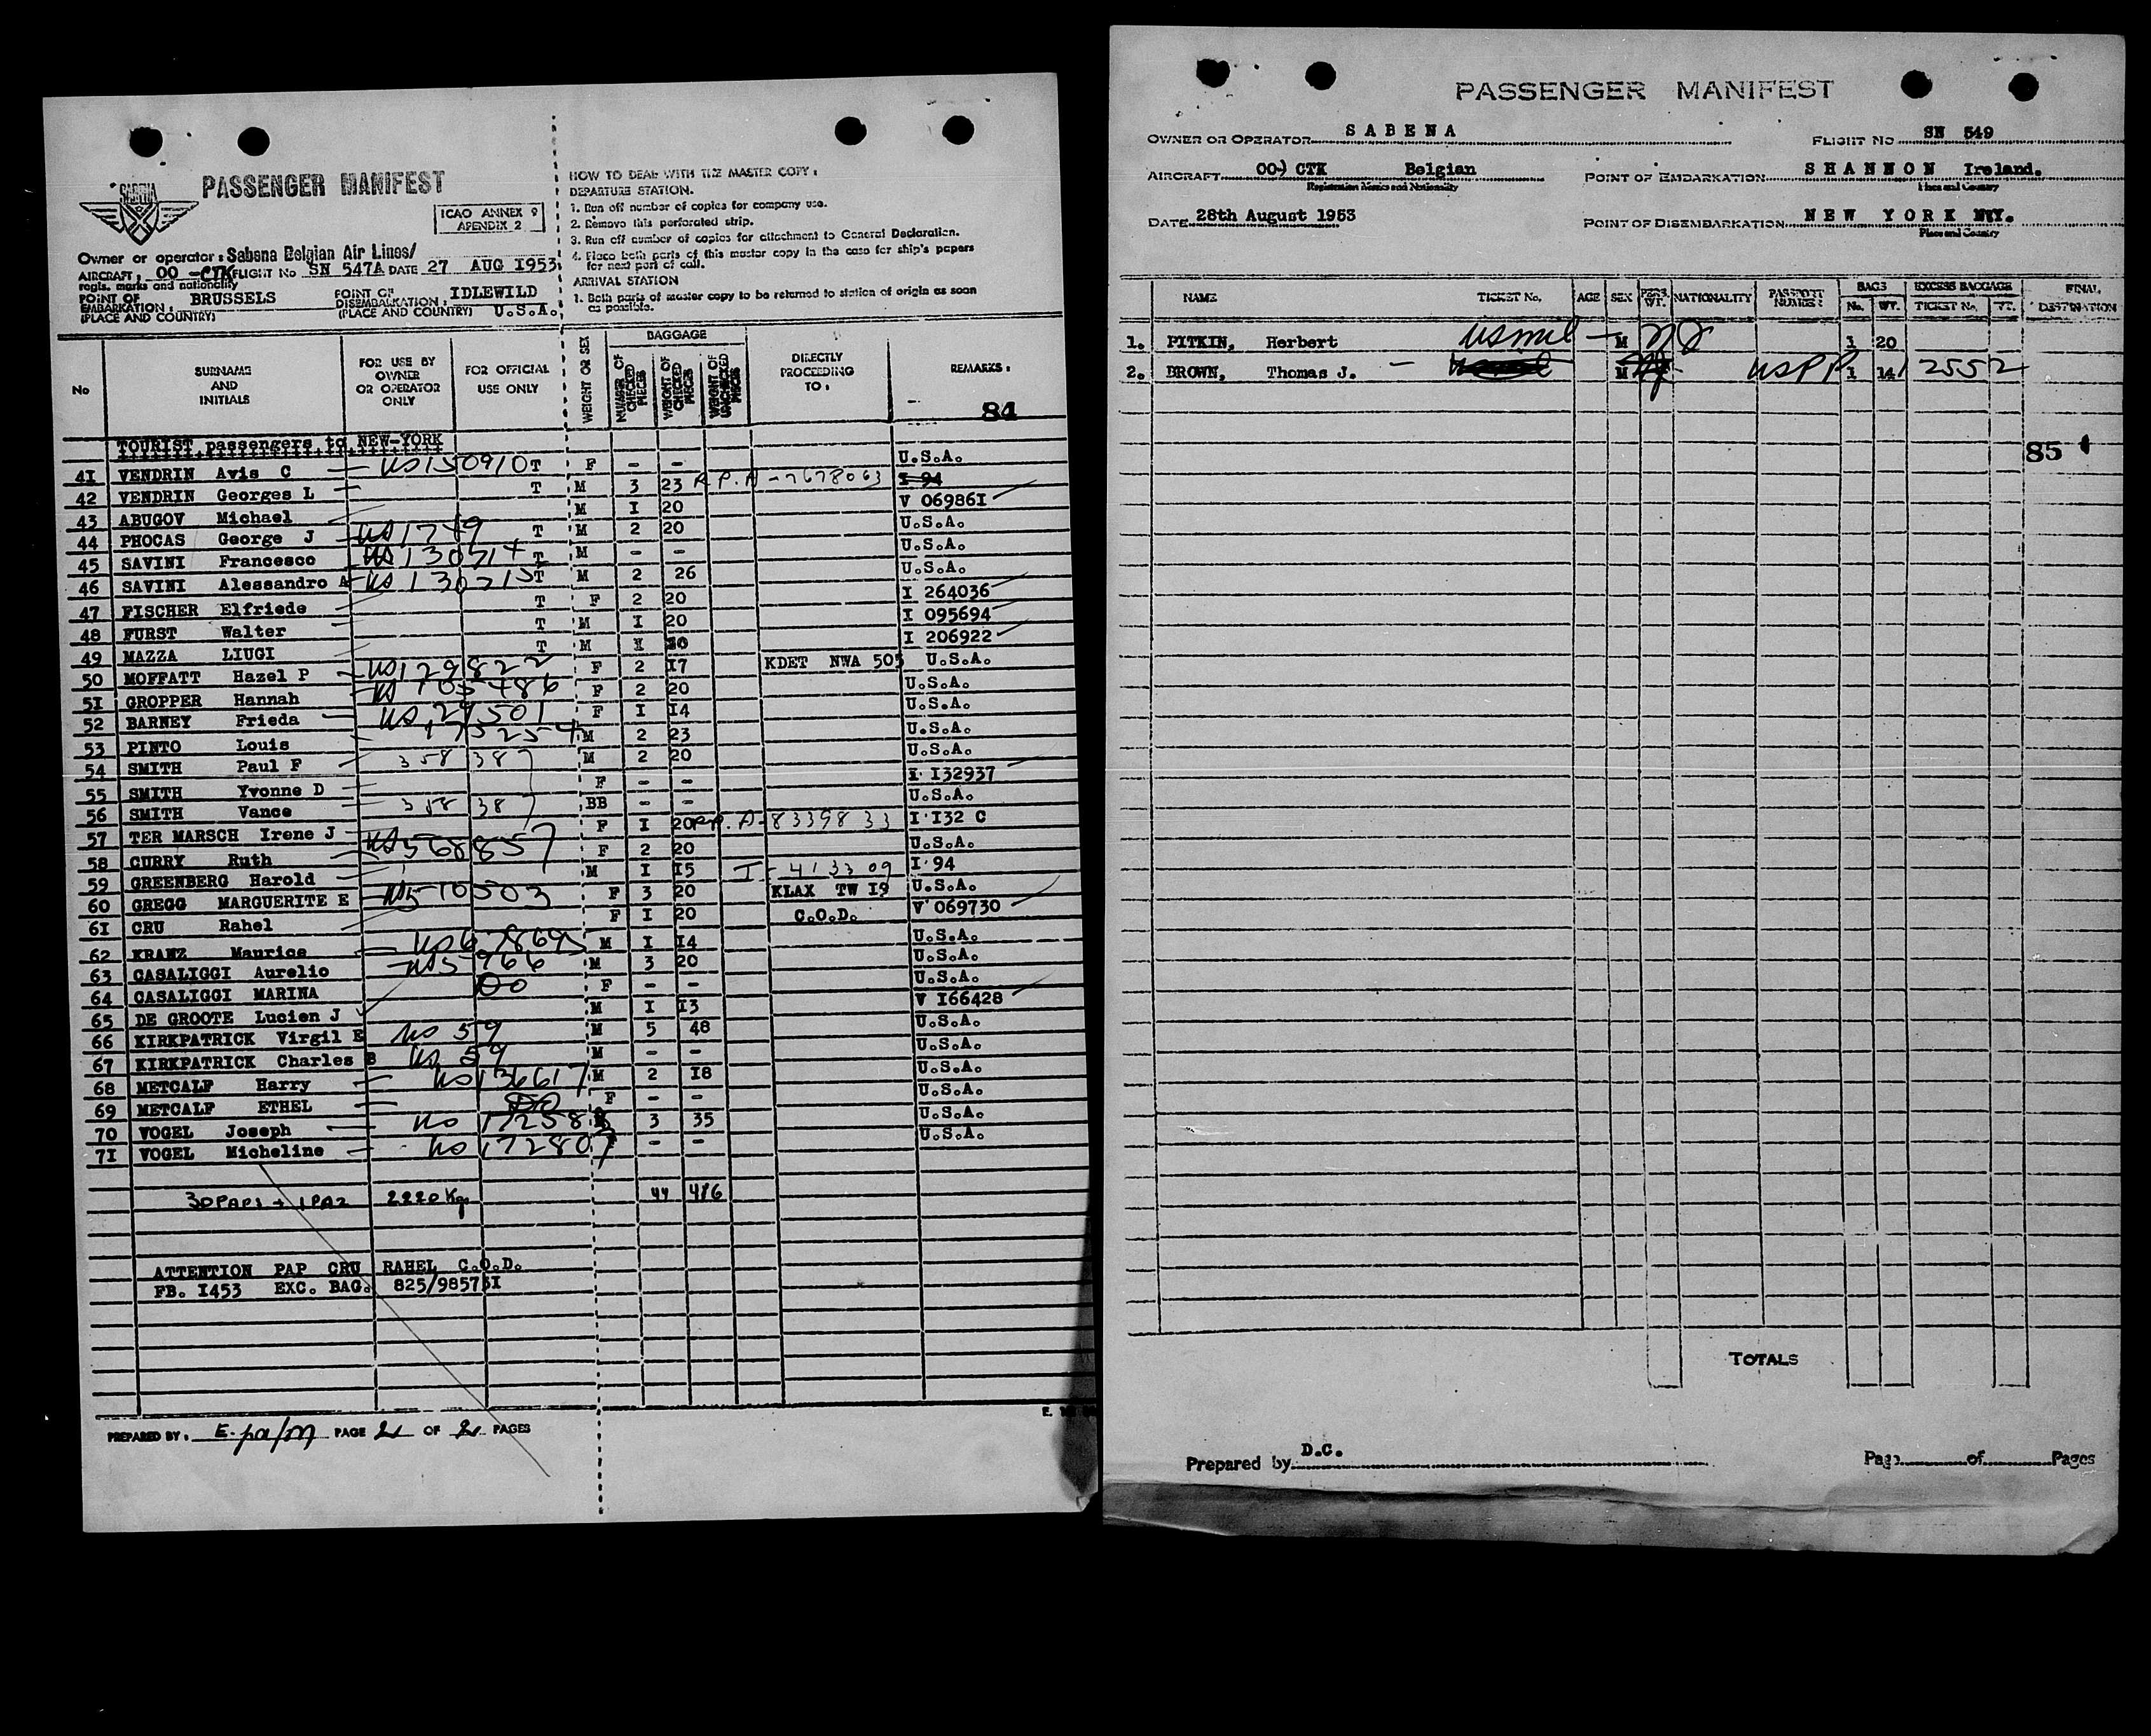 SABENA
PASSENGER MANIFEST
ICAO ANNEX 9
APENDIX 2
Owner or operator: Sabena Belgian Air Lines/
AIRCRAFT: OO -CTK FLIGHT No SN 547A DATE 27 AUG 1953
regis. marks and nationality
POINT OF EMBARKATION: BRUSSELS POINT OF DISEMBARKATION: IDLEWILD
(PLACE AND COUNTRY) (PLACE AND COUNTRY) U.S.A.
HOW TO DEAL WITH THE MASTER COPY:
DEPARTURE STATION.
1. Run off number of copies for company use.
2. Remove this perforated strip.
3. Run off number of copies for attachment to General Declaration.
4. Place both parts of this master copy in the case for ship's papers
for next port of call.
ARRIVAL STATION
1. Both parts of master copy to be returned to station of origin as soon
as possible.
No SURNAME AND INITIALS FOR USE BY OWNER OR OPERATOR ONLY FOR OFFICIAL USE ONLY WEIGHT OR SEX BAGGAGE NUMBER OF CHECKED PIECES WEIGHT OF CHECKED PIECES WEIGHT OF UNCHECKED PIECES DIRECTLY PROCEEDING TO: REMARKS:
84
TOURIST passengers to NEW-YORK
41 VENDRIN Avis C US 150910 T F - - U.S.A.
42 VENDRIN Georges L T M 3 23 R.P.A-7678063 I 94
43 ABUGOV Michael M I 20 V 069861
44 PHOCAS George J T M 2 20 U.S.A.
45 SAVINI Francesco T M - - U.S.A.
46 SAVINI Alessandro A US 130715 T M 2 26 U.S.A.
47 FISCHER Elfriede T F 2 20 I 264036
48 FURST Walter T M I 20 I 095694
49 MAZZA LIUGI T M I I 206922
50 MOFFATT Hazel P US 129822 F 2 17 KDET NWA 505 U.S.A.
51 GROPPER Hannah F 2 20 U.S.A.
52 BARNEY Frieda F I 14 U.S.A.
53 PINTO Louis M 2 23 U.S.A.
54 SMITH Paul F 358 387 M 2 20 U.S.A.
55 SMITH Yvonne D F - - I I32937
56 SMITH Vance 358 387 BB - - U.S.A.
57 TER MARSCH Irene J F I 20 R.P. A-8339833 I I32 C
58 CURRY Ruth US 568857 F 2 20 U.S.A.
59 GREENBERG Harold M I 15 I-413309 I 94
60 GREGG MARGUERITE E US 570503 F 3 20 KLAX TW I9 U.S.A.
61 CRU Rahel F I 20 C.O.D. V 069730
62 KRANZ Maurice M I 14 U.S.A.
63 CASALIGGI Aurelio M 3 20 U.S.A.
64 CASALIGGI MARINA Do F - - U.S.A.
65 DE GROOTE Lucien J M I 13 V I66428
66 KIRKPATRICK Virgil E US 59 M 5 48 U.S.A.
67 KIRKPATRICK Charles B US 59 M - - U.S.A.
68 METCALF Harry US 136617 M 2 18 U.S.A.
69 METCALF ETHEL Do F - - U.S.A.
70 VOGEL Joseph US 17258 3 35 U.S.A.
71 VOGEL Micheline US 172807 - - U.S.A.
30 PAP1 + 1 PA2 2220 Kg 44 416
ATTENTION PAP CRU RAHEL C.O.D.
FB. I453 EXC. BAG. 825/985761
PREPARED BY: PAGE 2 OF 2 PAGES
PASSENGER MANIFEST
OWNER OR OPERATOR SABENA FLIGHT No SN 549
AIRCRAFT OO-) CTK Belgian POINT OF EMBARKATION SHANNON Ireland.
Registration Marks and Nationality Place and Country
DATE 28th August 1953 POINT OF DISEMBARKATION NEW YORK NY.
Place and Country
NAME TICKET No. AGE SEX PERS. WT. NATIONALITY PASSPORT NUMBER BAGS No. WT. EXCESS BAGGAGE TICKET No. WT. FINAL DESTINATION
1. PITKIN, Herbert USmil M 1 20
2. BROWN, Thomas J. M USPP 1 14 2552
85
TOTALS
Prepared by D.C. Page of Pages